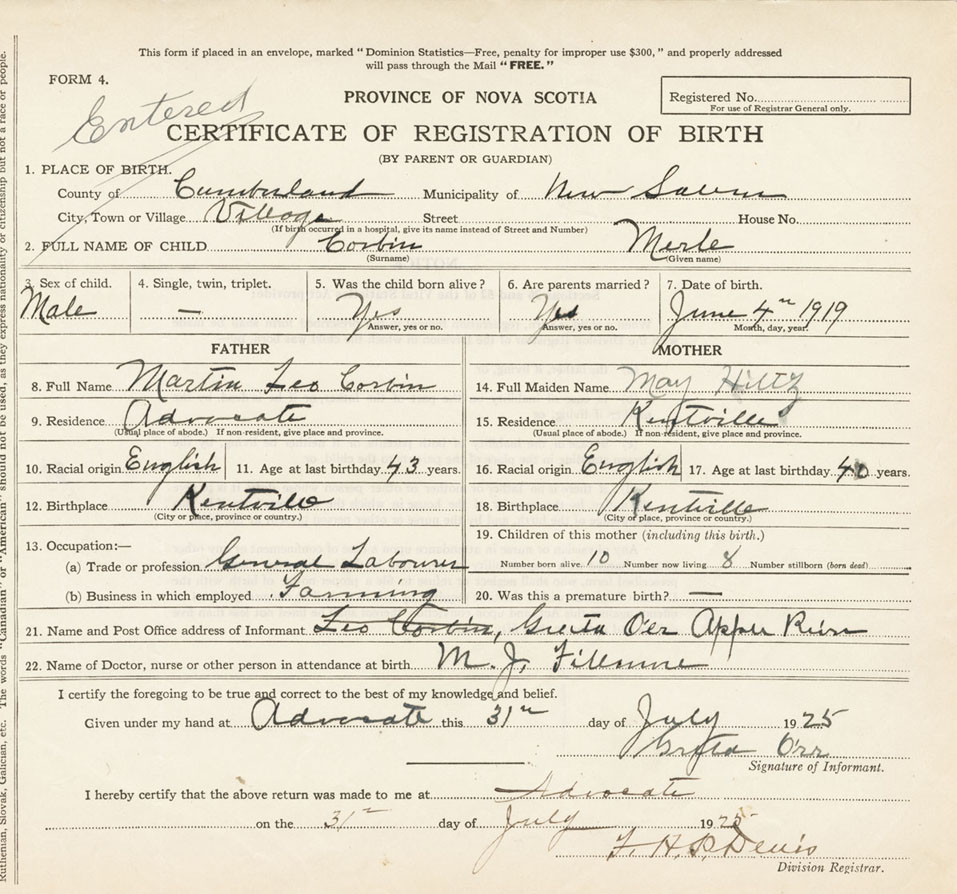 This form if placed in an envelope, marked "Dominion Statistics—Free, penalty for improper use $300," and properly addressed
will pass through the Mail "FREE."
FORM 4.
Entered
PROVINCE OF NOVA SCOTIA
Registered No.
For use of Registrar General only.
CERTIFICATE OF REGISTRATION OF BIRTH
(BY PARENT OR GUARDIAN)
1. PLACE OF BIRTH.
County of Cumberland Municipality of New Salem
City, Town or Village Village Street House No.
(If birth occurred in a hospital, give its name instead of Street and Number)
2. FULL NAME OF CHILD Corbin Merle
(Surname) (Given name)
3. Sex of child. 4. Single, twin, triplet. 5. Was the child born alive? 6. Are parents married? 7. Date of birth.
Male — Yes Yes June 4th 1919
Answer, yes or no. Answer, yes or no. Month, day, year.
FATHER MOTHER
8. Full Name Martin Leo Corbin 14. Full Maiden Name May Hiltz
9. Residence Advocate 15. Residence Kentville
(Usual place of abode.) If non-resident, give place and province. (Usual place of abode.) If non-resident, give place and province.
10. Racial origin English 11. Age at last birthday 43 years. 16. Racial origin English 17. Age at last birthday 40 years.
12. Birthplace Kentville 18. Birthplace Kentville
(City or place, province or country.) (City or place, province or country.)
19. Children of this mother (including this birth.)
13. Occupation:—
(a) Trade or profession General Labourer Number born alive 10 Number now living 8 Number stillborn (born dead)
(b) Business in which employed Farming 20. Was this a premature birth? —
21. Name and Post Office address of Informant Leo Corbin, Greta Orr Apple River
22. Name of Doctor, nurse or other person in attendance at birth M. J. Fillmore
I certify the foregoing to be true and correct to the best of my knowledge and belief.
Given under my hand at Advocate this 31st day of July 1925
Greta Orr
Signature of Informant.
I hereby certify that the above return was made to me at Advocate
on the 31st day of July 1925
Division Registrar.
Ruthenian, Slovak, Galician, etc. The words "Canadian" or "American" should not be used, as they express nationality or citizenship but not a race or people.